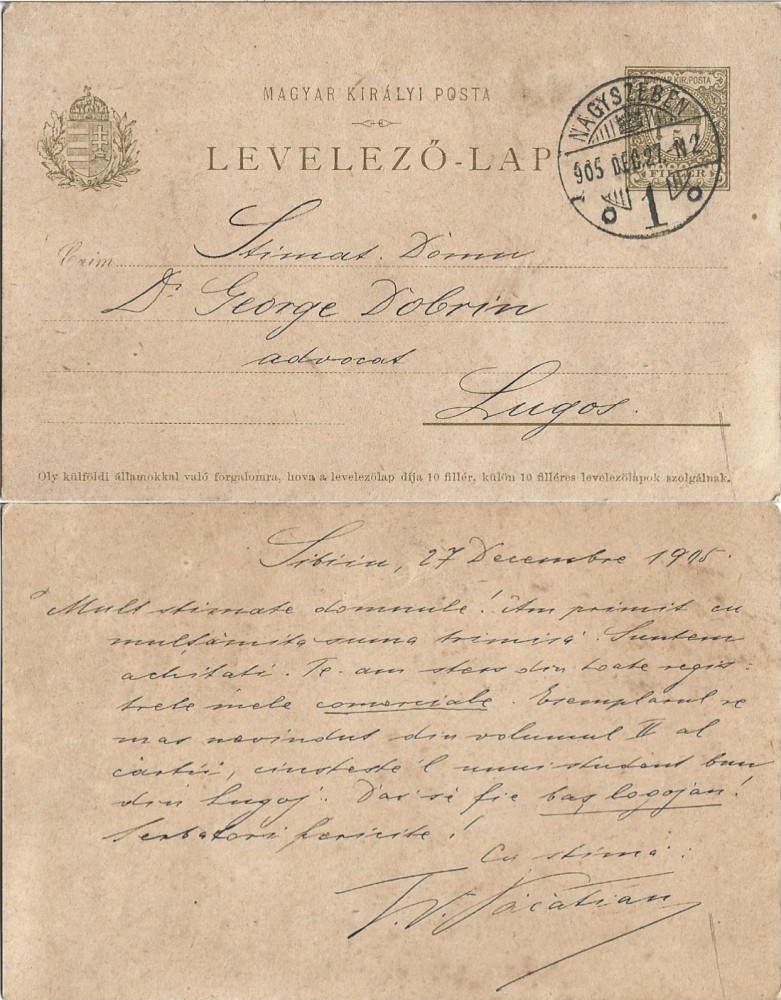 MAGYAR KIRÁLYI POSTA
LEVELEZŐ-LAP
MAGYAR KIR. POSTA
FILLÉR
NAGYSZEBEN
905 DEC. 27. N 2
1
Czim
Stimat. Domn
Dr George Dobrin
advocat
Lugos.
Oly külföldi államokkal való forgalomra, hova a levelezőlap díja 10 fillér, külön 10 filléres levelezőlapok szolgálnak.
Sibiiu, 27 Decembre 1905.
Mult stimate domnule! Am primit cu
multămită suma trimisă. Suntem
achitati. Te-am sters din toate regis-
trele mele comerciale. Exemplarul re
mas nevindut din volumul II al
cărtii, cinsteste'l unui student bun
din Lugoj. Dar să fie baş logojan!
Serbatori fericite!
Cu stimă:
T. V. Păcătian